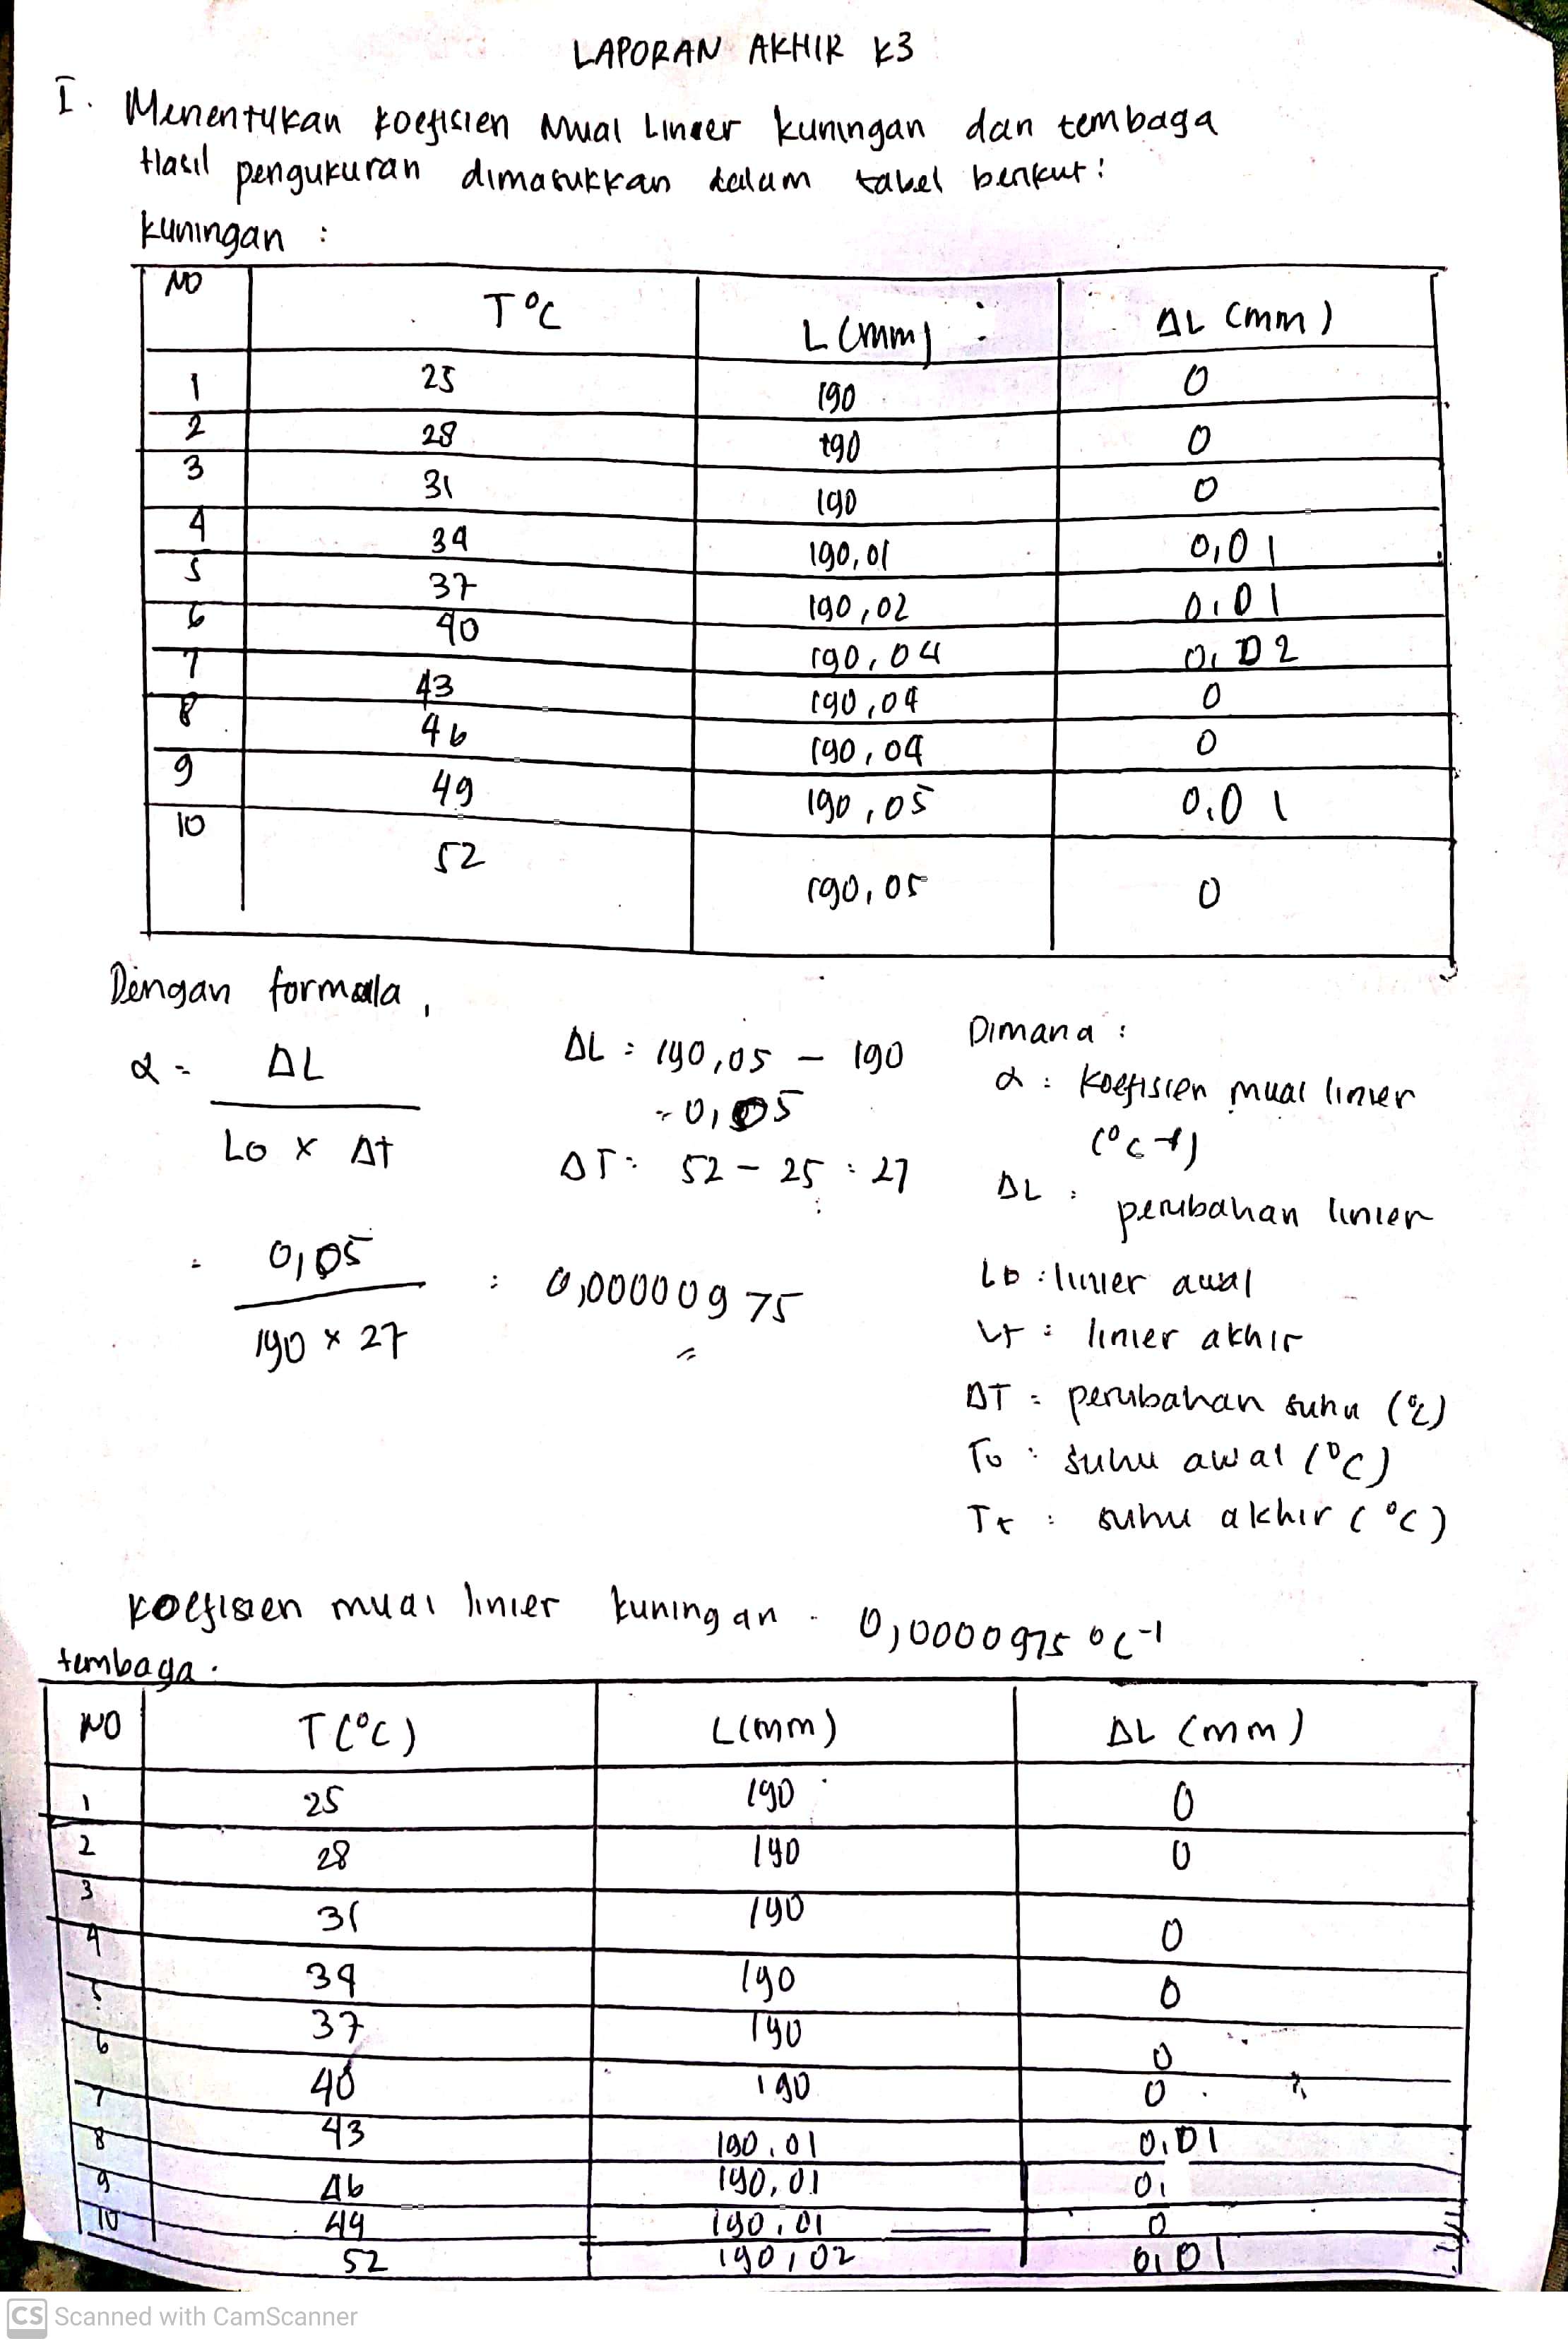 LAPORAN AKHIR K3
I. Menentukan koefisien Muai Linier kuningan dan tembaga
Hasil pengukuran dimasukkan dalam tabel berikut:
Kuningan :
NO T °C L (mm) : ΔL (mm)
1 25 190 0
2 28 190 0
3 31 190 0
4 34 190,01 0,01
5 37 190,02 0,01
6 40 190,04 0,02
7 43 190,04 0
8 46 190,04 0
9 49 190,05 0,01
10 52 190,05 0
Dengan formula,
α = ΔL / Lo x Δt
ΔL = 190,05 - 190
= 0,05
ΔT = 52 - 25 : 27
= 0,05 / 190 x 27 : 0,00000975
Dimana :
α : Koefisien muai linier
(°C-1)
ΔL : perubahan linier
Lo : linier awal
Lt : linier akhir
ΔT = perubahan suhu (°C)
To : Suhu awal (°C)
Tt : suhu akhir (°C)
Koefisien muai linier kuningan . 0,0000975 °C-1
tembaga.
NO T(°C) L(mm) ΔL (mm)
1 25 190 0
2 28 190 0
3 31 190 0
4 34 190 0
5 37 190 0
6 40 190 0
7 43 190,01 0,01
8 46 190,01 0,
9 49 190,01 0
10 52 190,02 0,01
CS Scanned with CamScanner